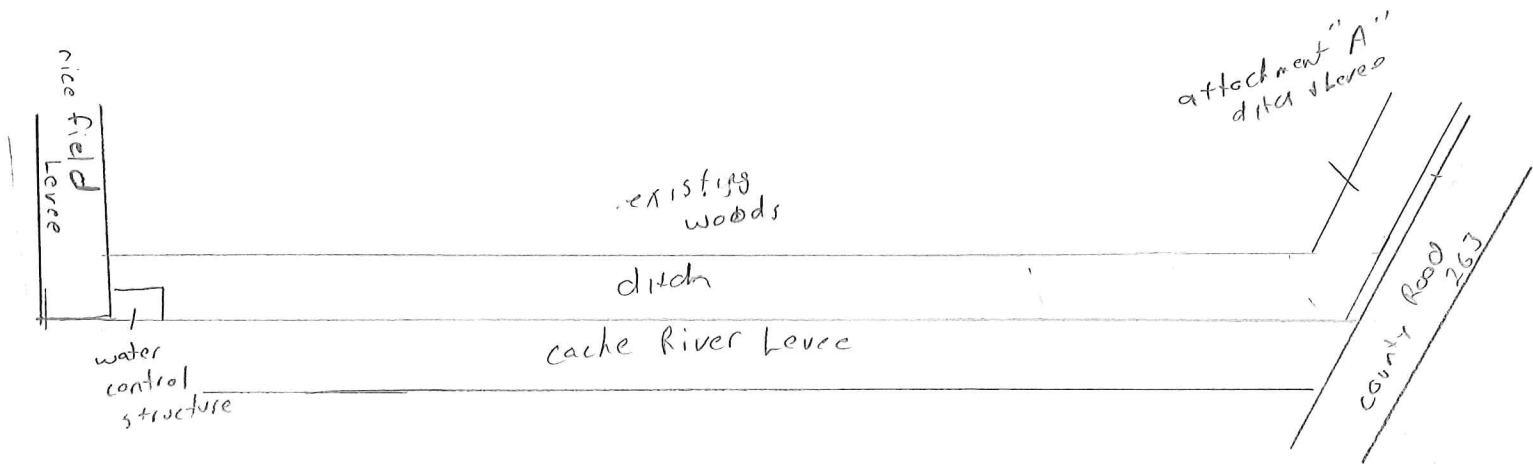 rice field
Levee
attachment "A"
ditch & Levee
existing
woods
ditch
cache River Levee
water
control
structure
county Road
263